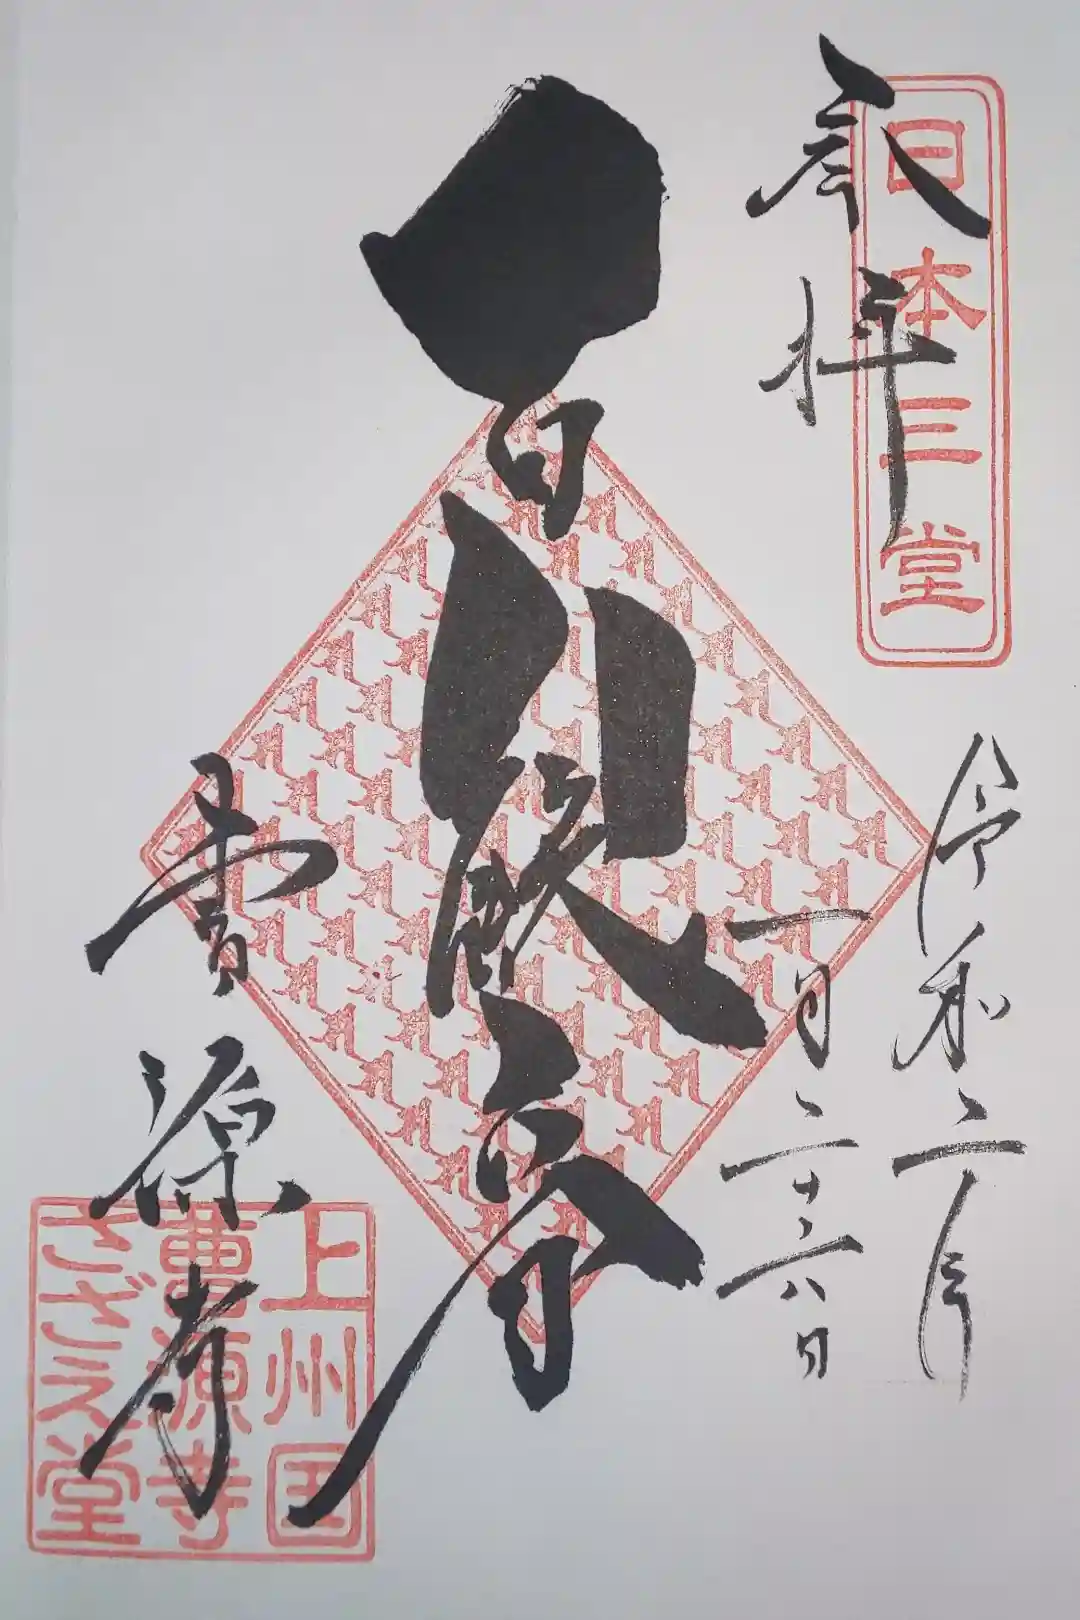 奉拝
日本三堂
令和二年
一月二十六日
曹源寺
上州国
曹源寺
さざえ堂